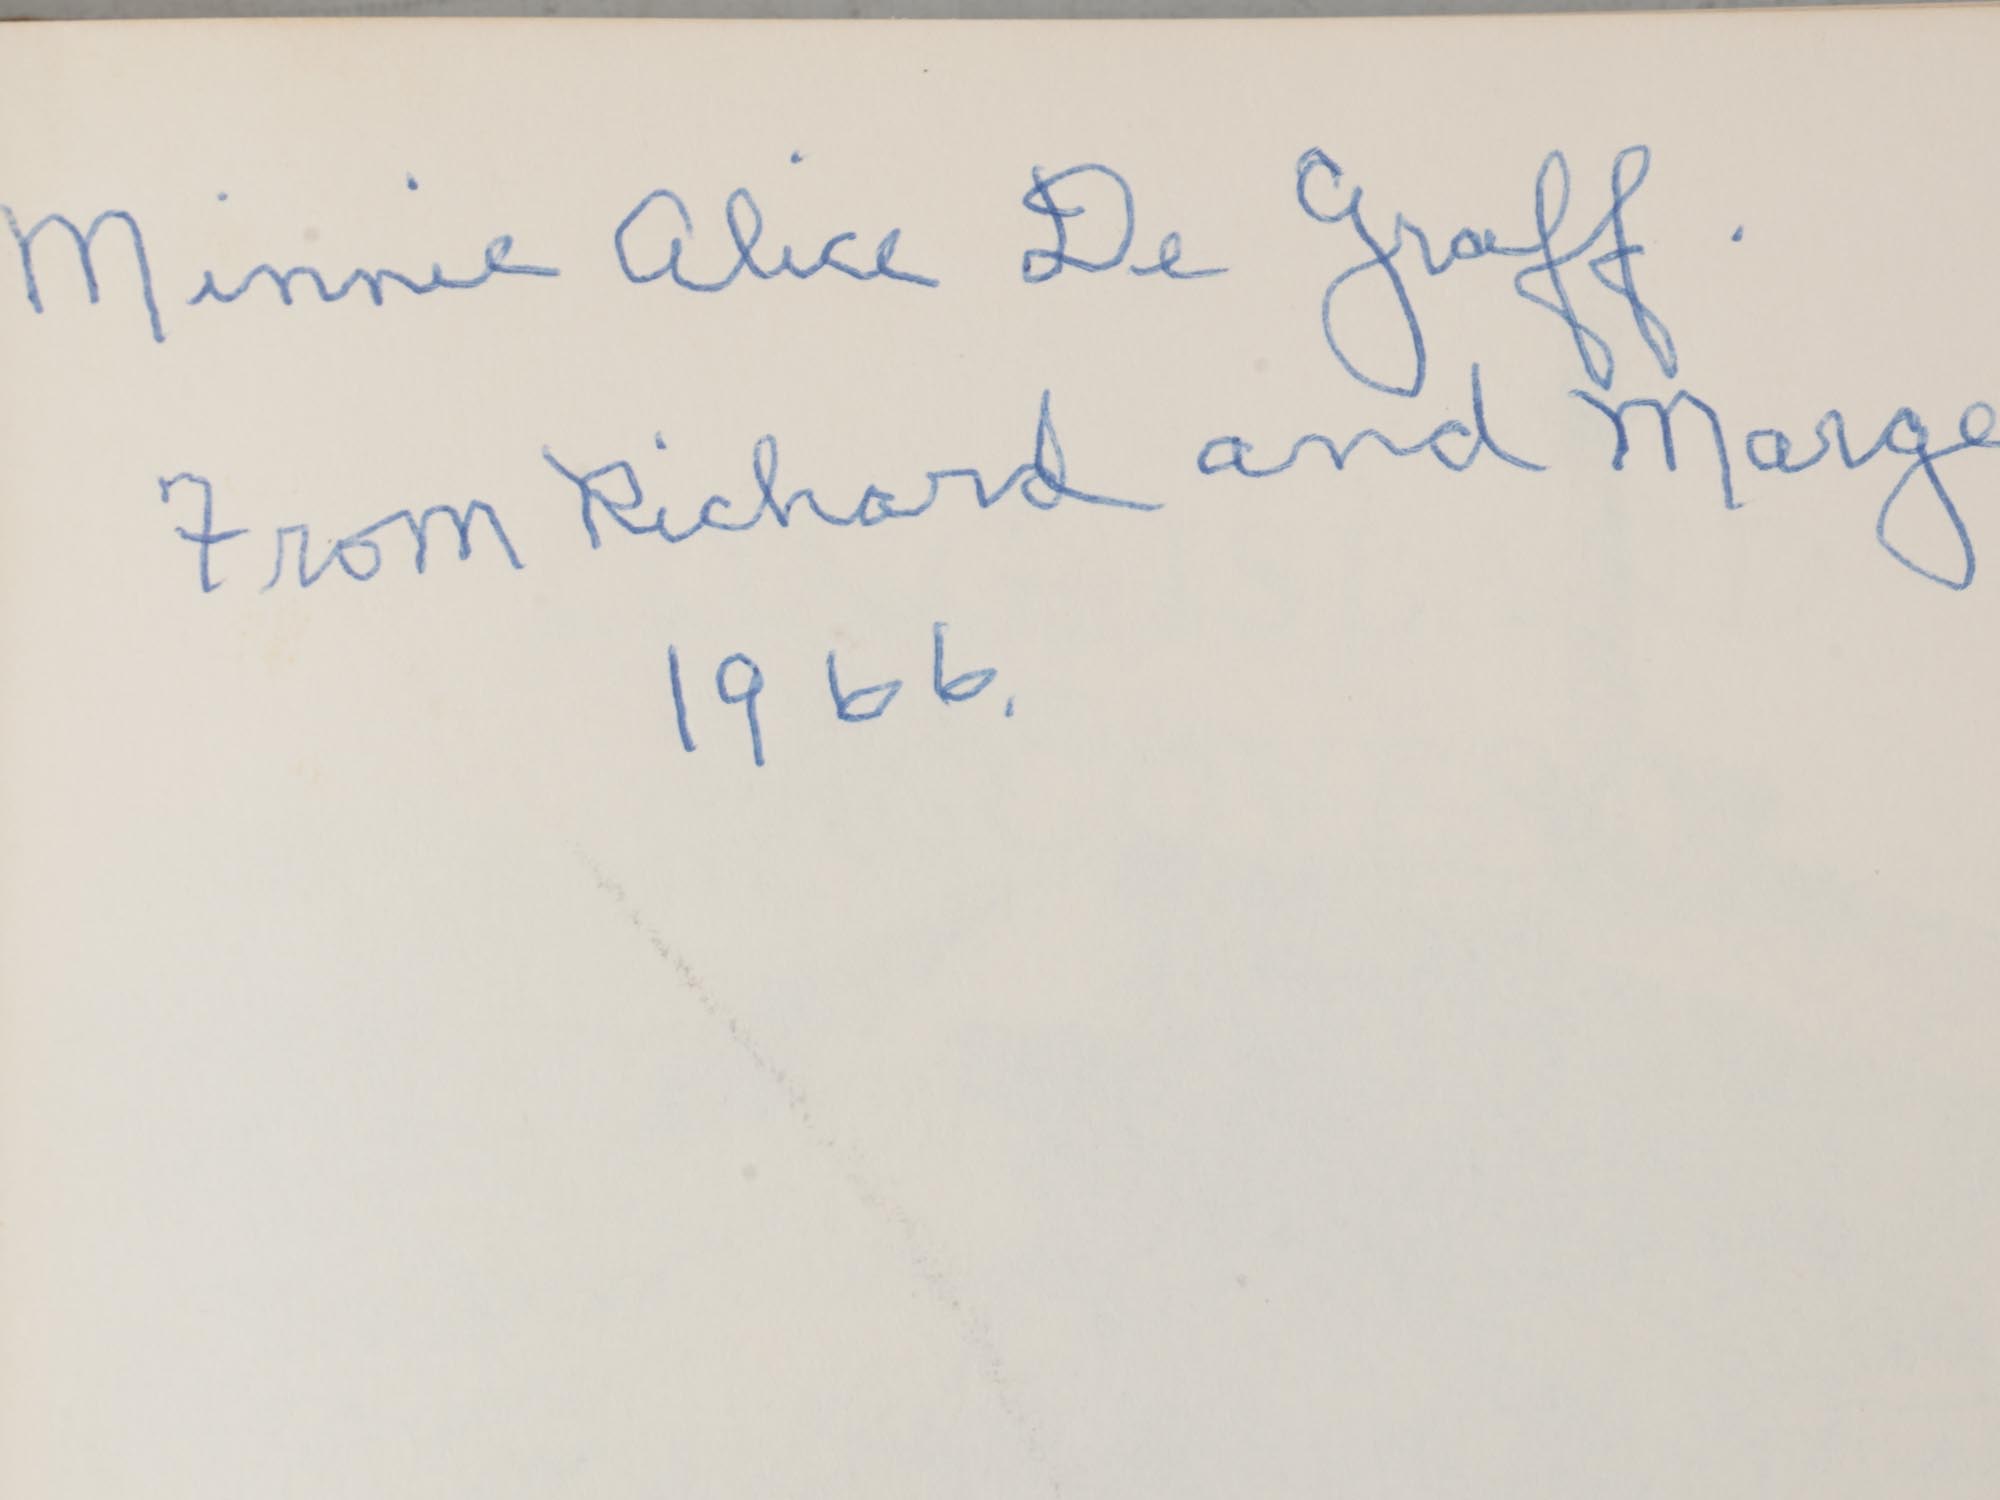 Minnie Alice De Graff.
From Richard and Marge
1966.